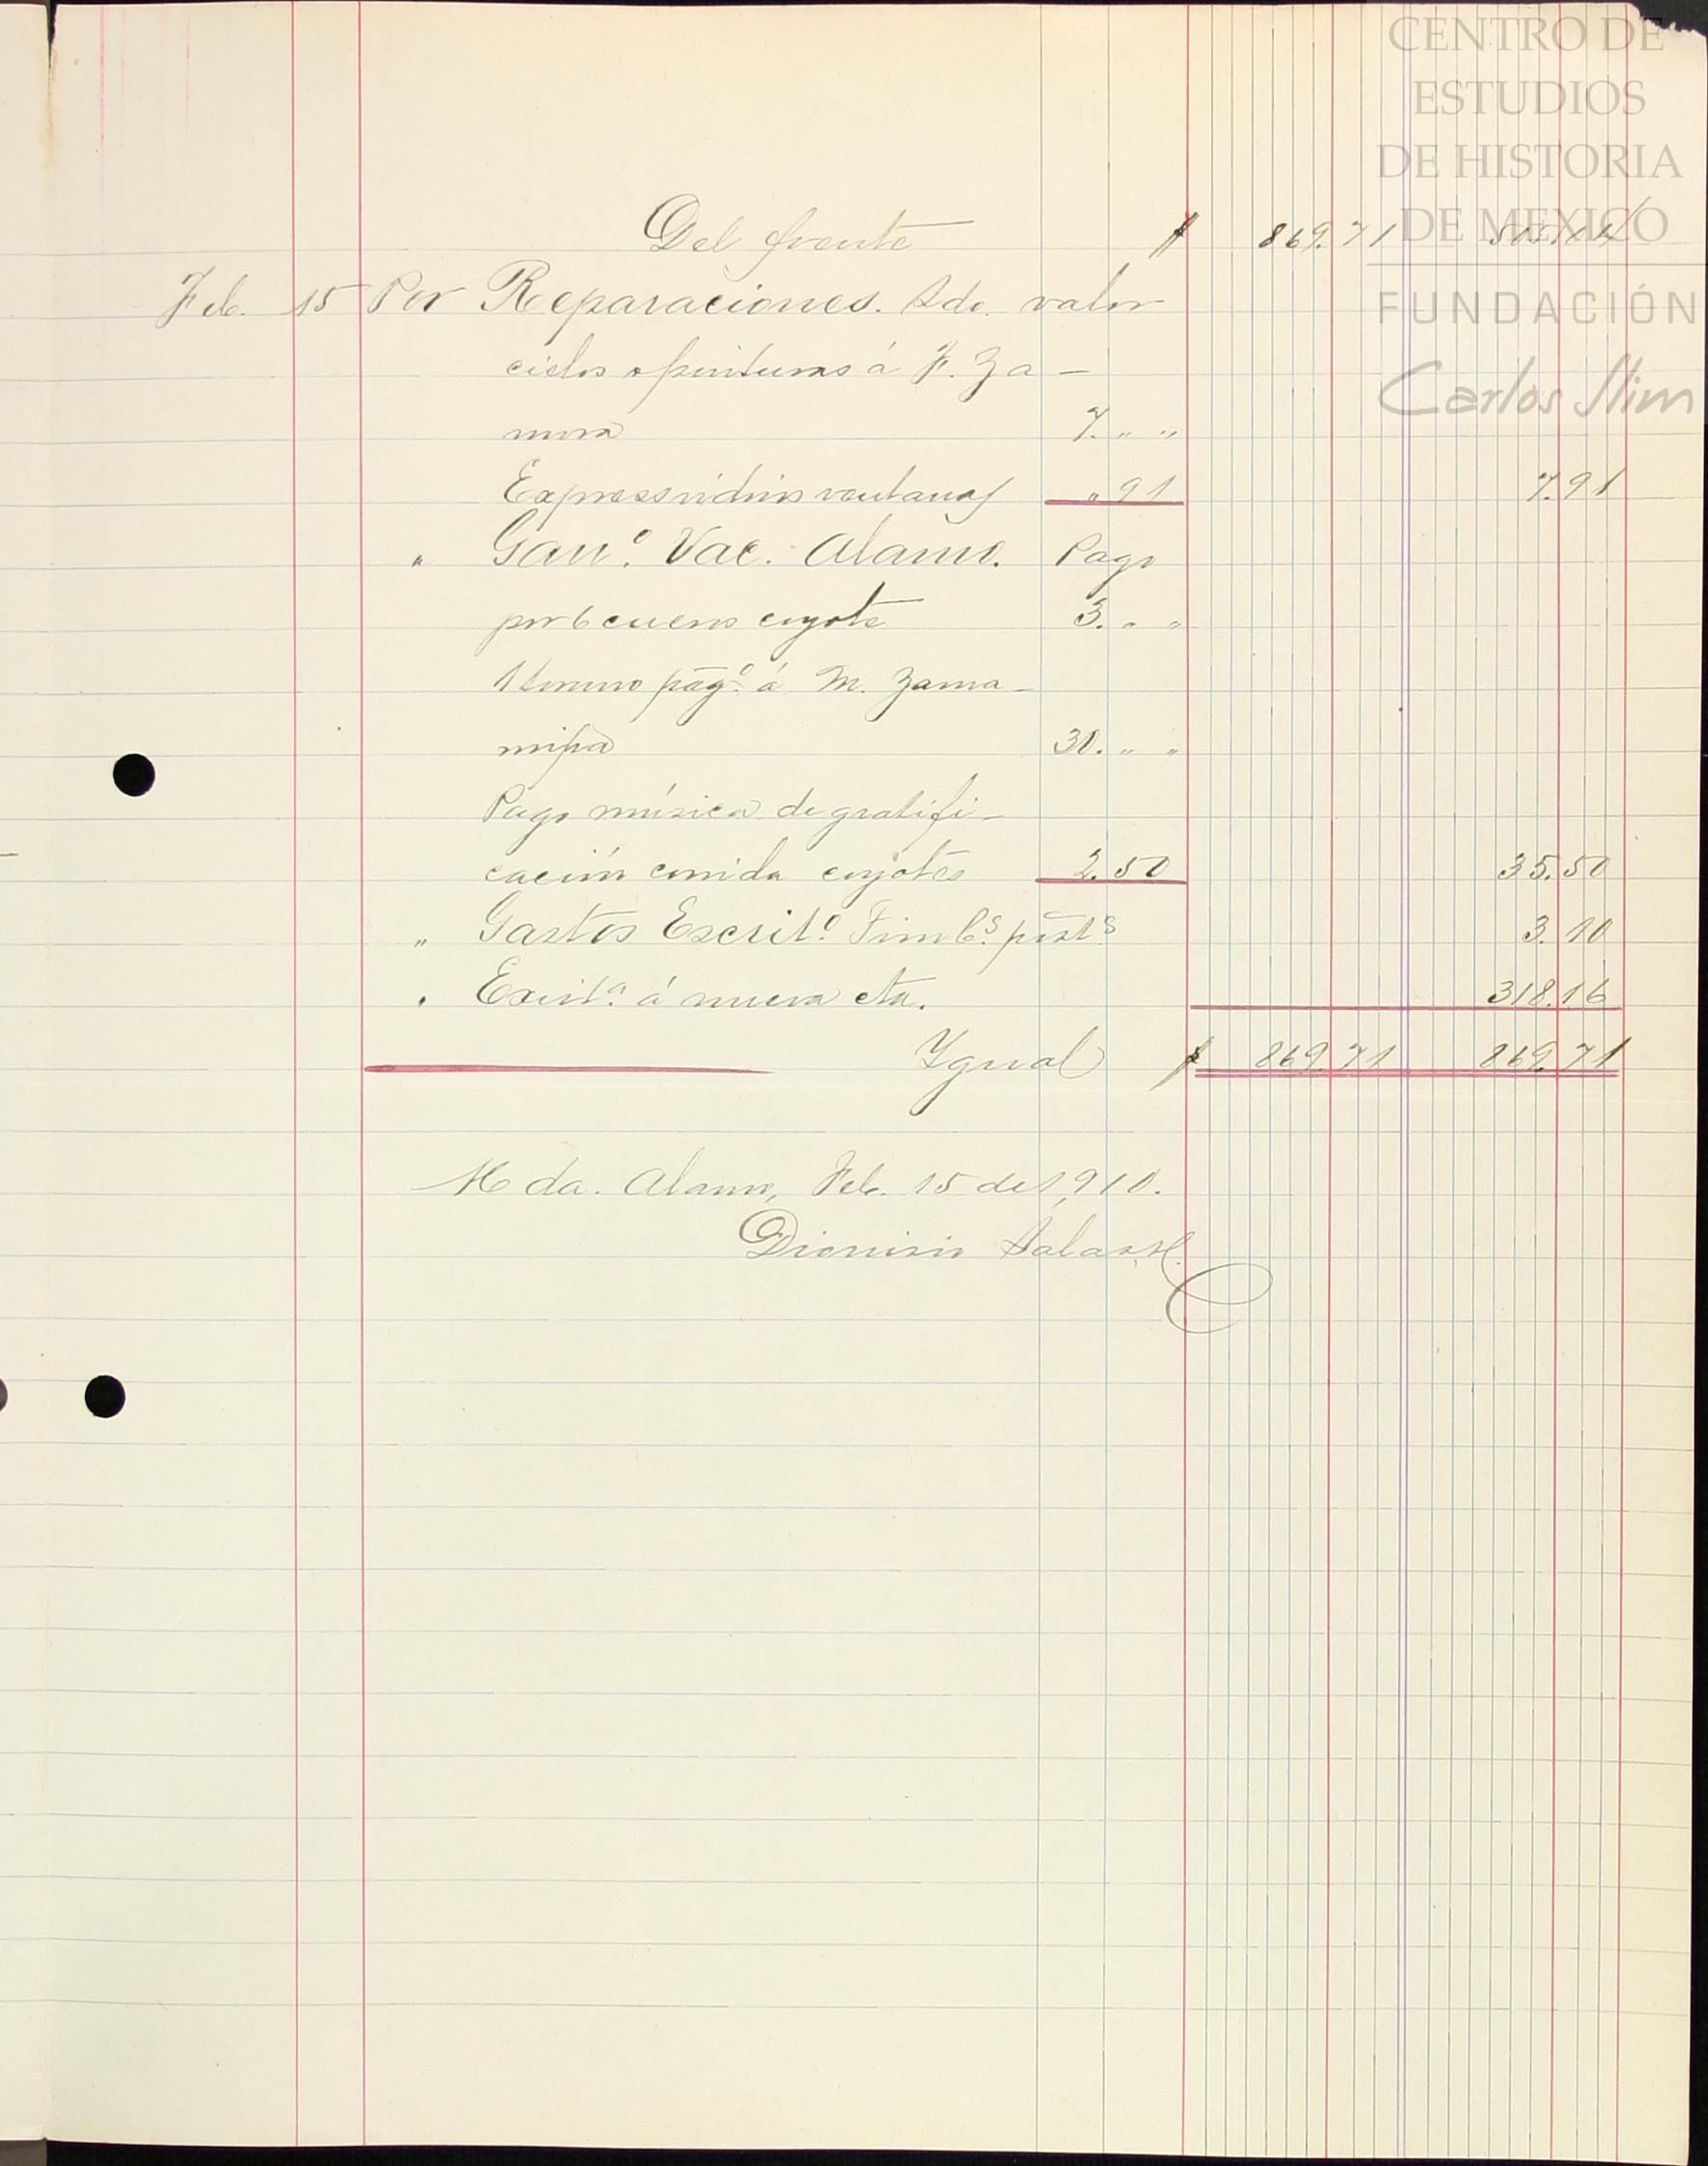 CENTRO DE
ESTUDIOS
DE HISTORIA
DE MEXICO
FUNDACIÓN
Carlos Slim
Del frente $ 869.71 505.04
Feb. 15 Por Reparaciones. Sdo. valor
cielos pinturas á F. Za-
mora 7. " "
Express vidrios ventanas " 91 7.91
" Gan.º Vac. Alamo. Pago
por 6 cueros coyote 3. " "
1 toruno pag.º á M. Zama-
rripa 30. " "
Pago música de gratifi-
cación comida coyotes 2.50 35.50
" Gastos Escrit.º Timb.s post.s 3.10
" Exist.a á nueva cta. 318.16
Ygual $ 869.71 869.71
Hda. Alamo, Feb. 15 de 1,910.
Dionisio Salas H.